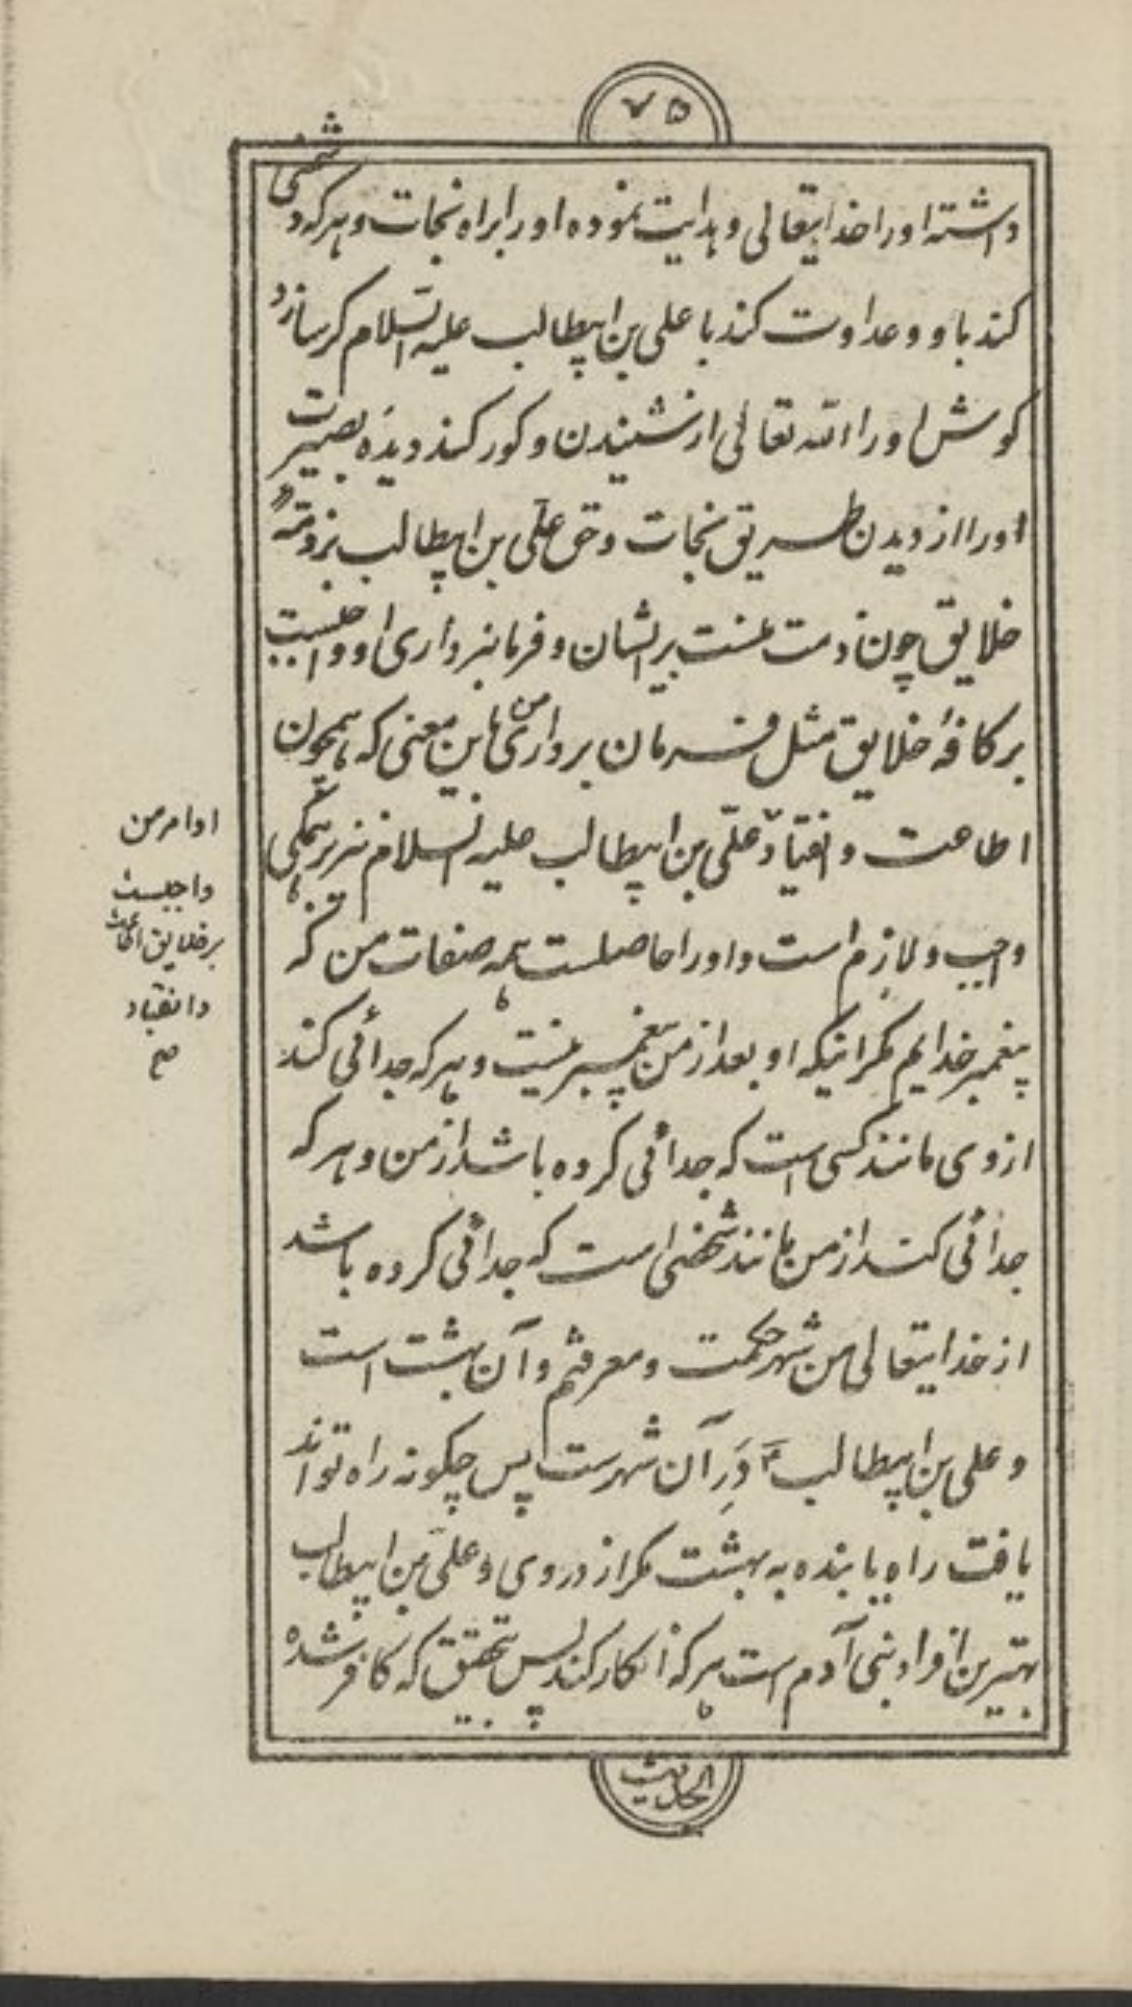 ۷۵
داشته او را خدایتعالی و هدایت نموده او را براه نجات و هر که دشمنی
کند با او و عداوت کند با علی بن ابیطالب علیه السلام کر سازد
کوش او را الله تعالی از شنیدن و کور کند دیدهٔ بصیرت
او را از دیدن طریق نجات و حق علی بن ابیطالب بر ذمّهٔ
خلایق چون ذمت منست بر ایشان و فرمانبرداری او واجبست
بر کافهٔ خلایق مثل فرمان برداری من باین معنی که همچون
اطاعت و انقیاد علی بن ابیطالب علیه السلام نیز بر همکی
واجب و لازم است و او را حاصلست همه صفات من که
پیغمبر خدایم مکر اینکه او بعد از من پیغمبر نیست و هر که جدائی کند
از وی مانند کسی است که جدائی کرده باشد از من و هر که
جدائی کند از من مانند شخصی است که جدائی کرده باشد
از خدایتعالی من شهر حکمت و معرفتم و آن بهشت است
و علی بن ابیطالب ع دَرِ آن شهرست پس چکونه راه تواند
یافت راه یابنده به بهشت مکر از در وی و علی بن ابیطالب
بهترین افراد بنی آدم است هر که انکار کند پس بتحقیق که کافر شده
الحدیث
اوامر من
واجبست
بر خلایق اطاعت
و انقیاد
صح